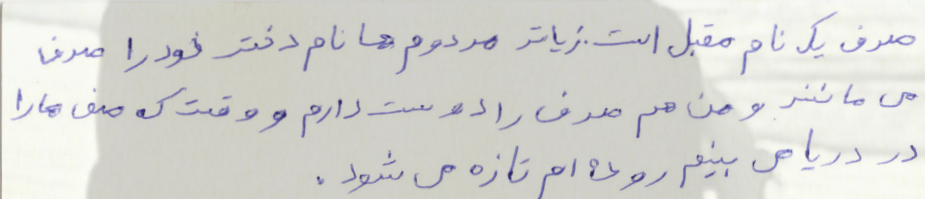 صدف یک نام مقبل است. زیاتر مردوم ها نام دختر خود را صدف
می مانند و من هم صدف را دوست دارم و وقت که صدف ها را
در دریا می بینم روح ام تازه می شود.